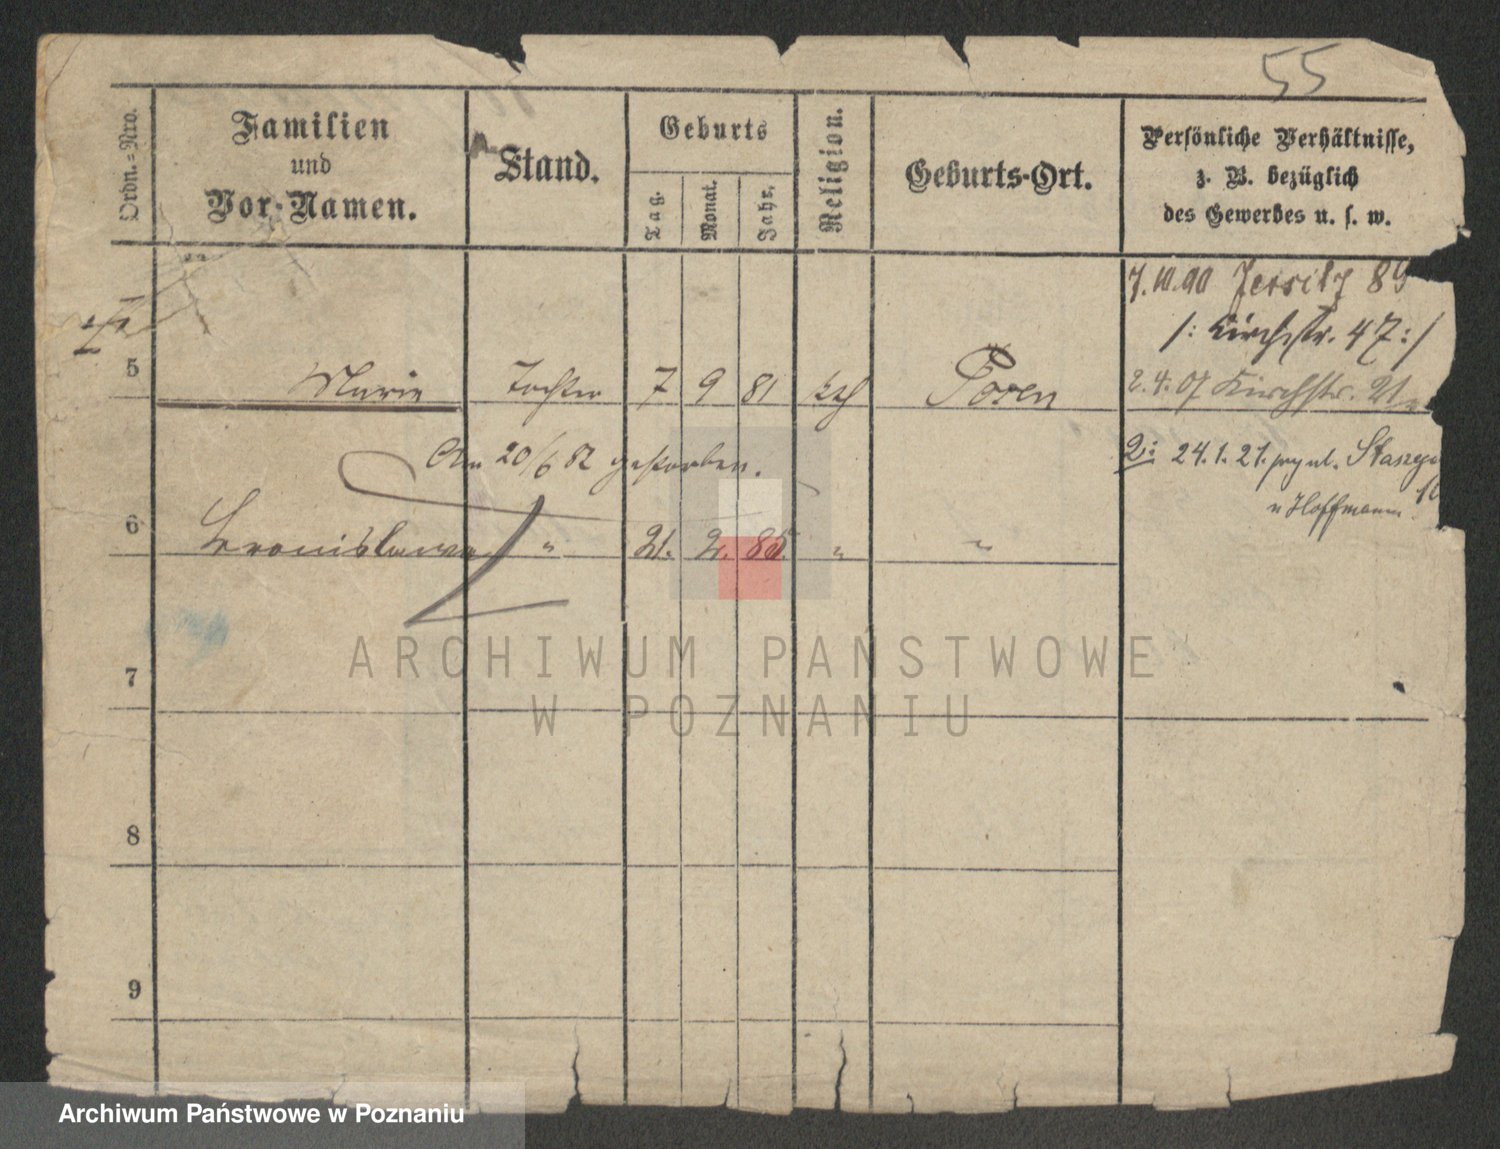 55
Ordn.=Nro.
Familien
und
Vor-Namen.
Stand.
Geburts
Tag.
Monat.
Jahr.
Religion.
Geburts-Ort.
Persönliche Verhältnisse,
z. B. bezüglich
des Gewerbes u. s. w.
7.10.90 Jersitz 89
/: Kirchstr. 47:/
5 Marie Tochter 7 9 81 kth Posen
2.4.07 Kirchstr. 21
Am 20/6 82 gestorben.
2: 24.1.21.
u Hoffmann
6 Bronislawa " 21. 2. 85. " "
7
8
9
ARCHIWUM PAŃSTWOWE
W POZNANIU
Archiwum Państwowe w Poznaniu